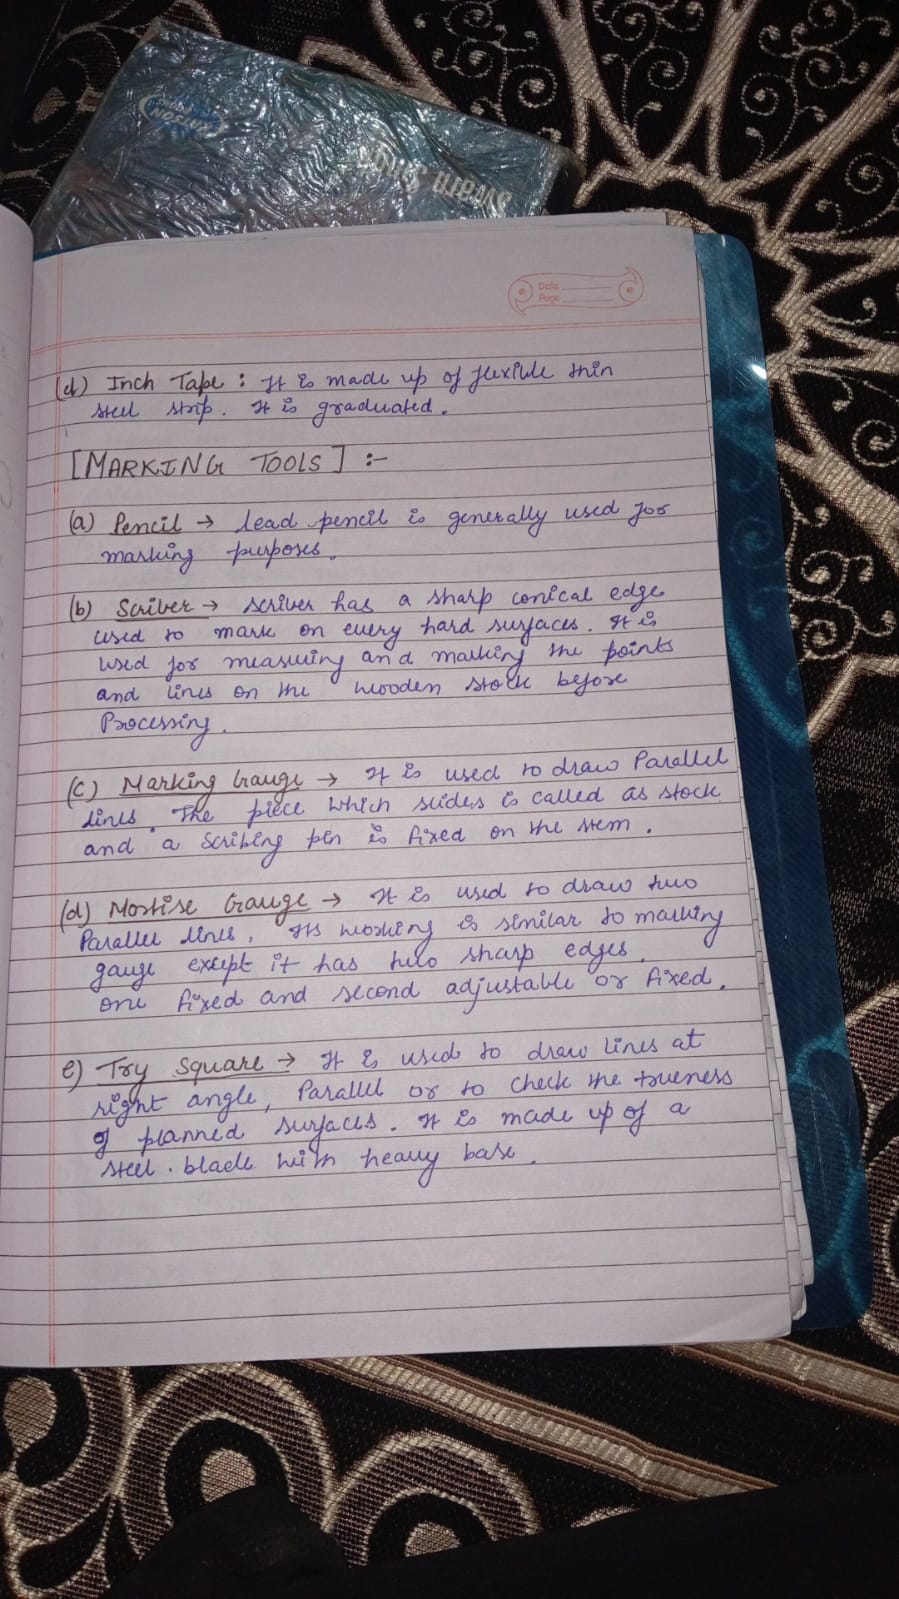 Date
Page
(d) Inch Tape : It is made up of flexible thin
steel strip. It is graduated.
[MARKING TOOLS] :-
(a) Pencil → lead pencil is generally used for
marking purposes.
(b) Scriber → scriber has a sharp conical edge
used to mark on every hard surfaces. It is
used for measuring and marking the points
and lines on the wooden stock before
Processing.
(c) Marking Gauge → It is used to draw Parallel
lines. The piece which slides is called as stock
and a scribing pin is fixed on the stem.
(d) Mortise Gauge → It is used to draw two
Parallel lines. Its working is similar to marking
gauge except it has two sharp edges.
one fixed and second adjustable or fixed.
e) Try Square → It is used to draw lines at
right angle, Parallel or to check the trueness
of planned surfaces. It is made up of a
steel. blade with heavy base.